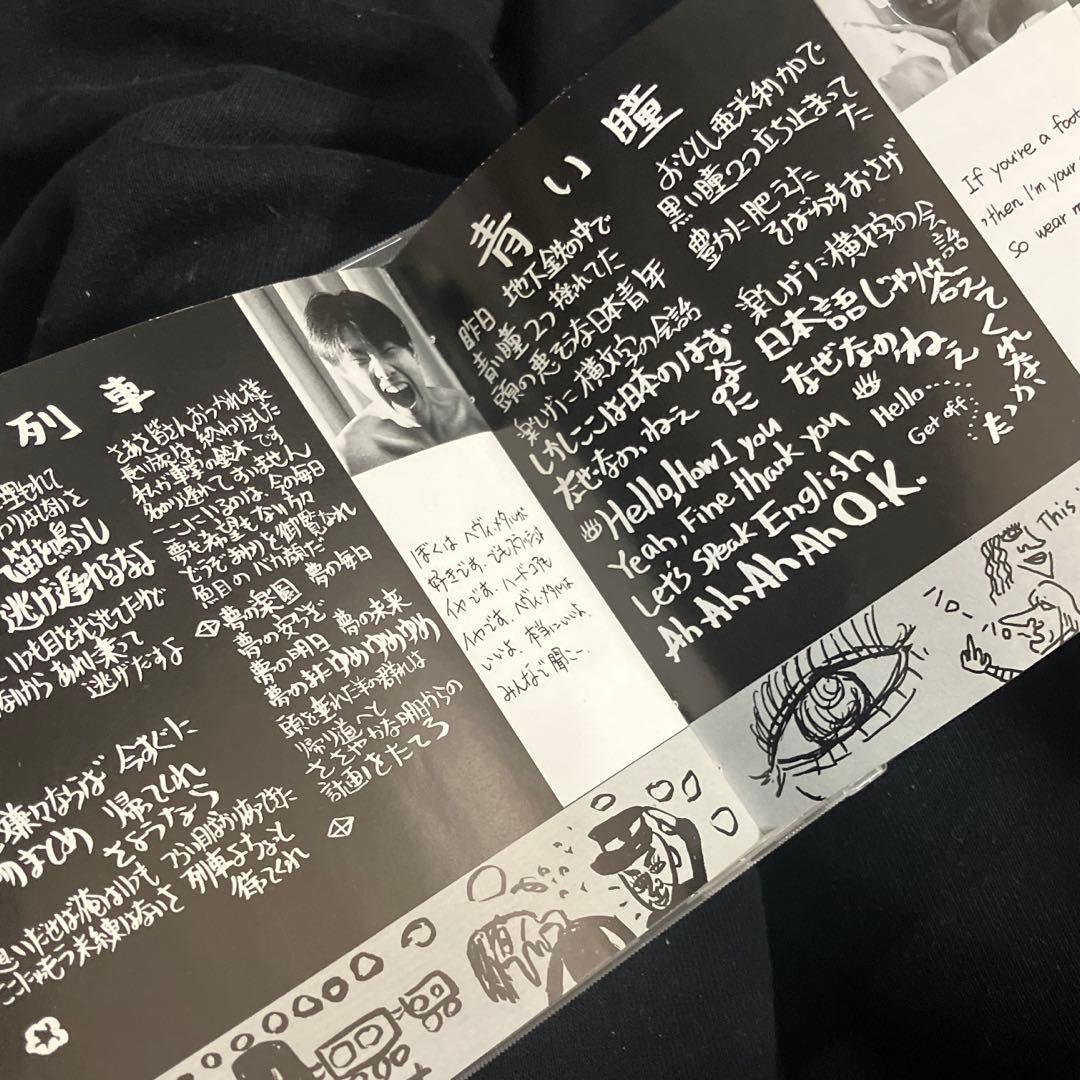 列車
埋もれて
わりはしないさ
笛を鳴らし
逃げ遅れるなよ
いつも目を光らせてたけど
あれに乗って
逃げだすよ
嫌々ならば 今すぐに
帰ってくれ
さようなら
思いだせば俺はいつも つらい目ばかりあってきた
ここにはもう未練はないさ 列車よちょっと
待ってくれ
さあさ皆さんおつかれ様
長い旅は、終わりました
私が車掌の鈴木です
名のり遅れてすいません
ここにいるのは、今の毎日
夢も希望もない方々
どうぞまわりと御覧なれ
魚目のバカ顔だ
夢の楽園 夢の毎日
夢の女うを
夢の明日 夢の未来
夢のまたゆめゆめゆめ
頭を垂れた羊の群れは
帰り道へと
ささやかな明日からの
計画をたてろ
ぼくは ヘヴィメタルが
好きです。
イヤです。ハードコアも
イヤです。ヘヴィメタルは
いいよ、本当にいい、
みんなで聞こー
青い瞳
昨日 地下鉄の中で
青い瞳2つ 揺れてた
頭の悪そうな日本青年
楽しげに横文字の会話
しかしここは日本のはず
なのに
なぜなの、ねえ
Hello, How I you
Yeah, Fine thank you
Let's speak English
Ah-Ah-Ah-Ah O.K.
おととし亜米利加で
黒い瞳2つ立ち止まって
た
豊かに肥えた
そばかすおさげ
楽しげに横文字の会
話
日本語じゃ答えて
くれなか
たっ
なぜなの、ねえ
Hello……
Get off……
If you're a foot
,then I'm your
so wear m
ハロー
This